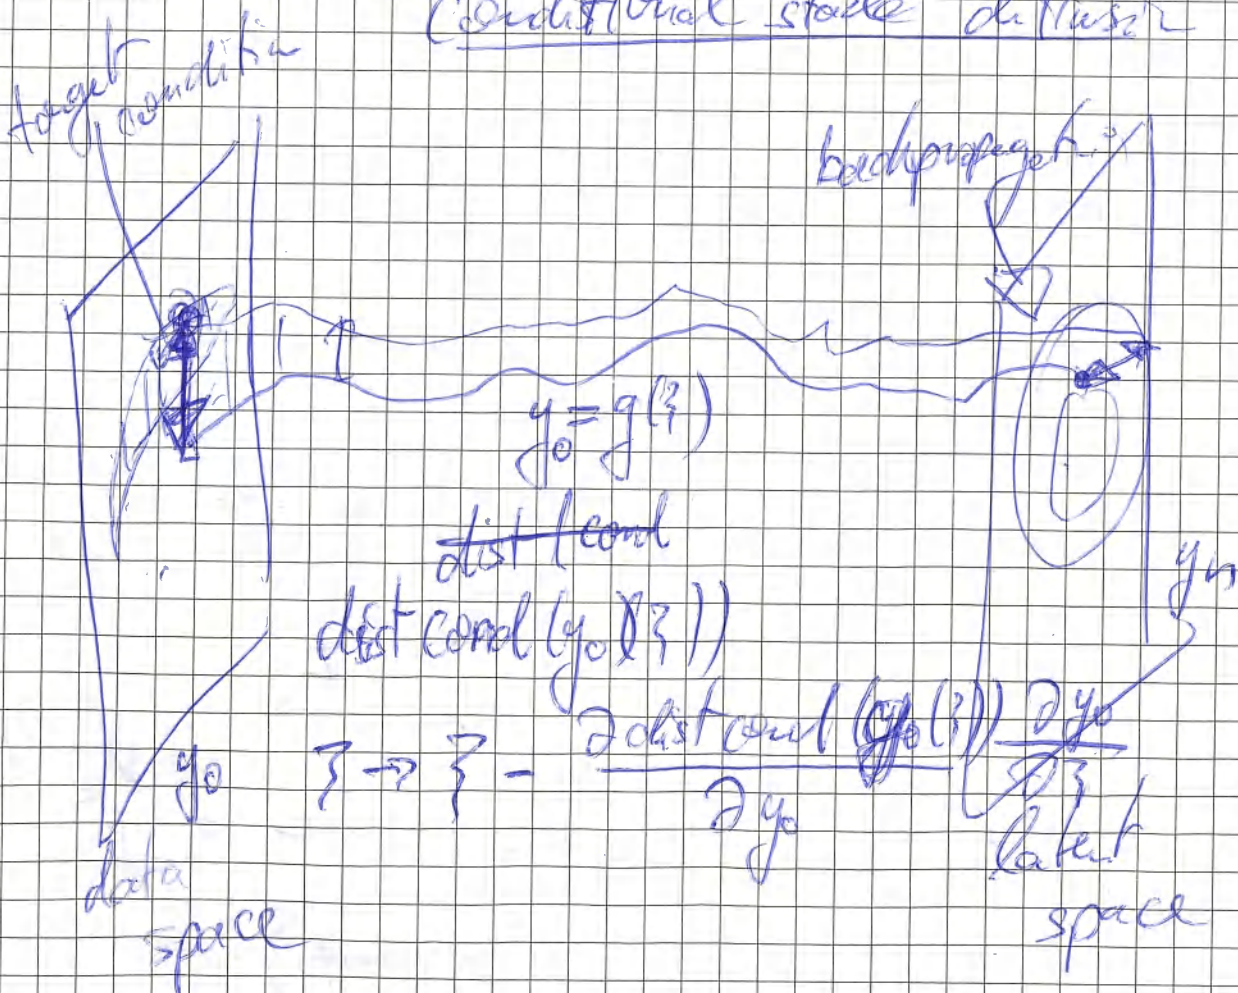 Conditional stable diffusion
target
condition
backpropagati
y₀ = g(ξ)
dist (cond
dist cond (y₀(ξ))
yₙ
y₀ ξ → ξ - ∂ dist cond (y₀(ξ)) / ∂y₀ ∂y₀ / ∂ξ
data
space
latent
space